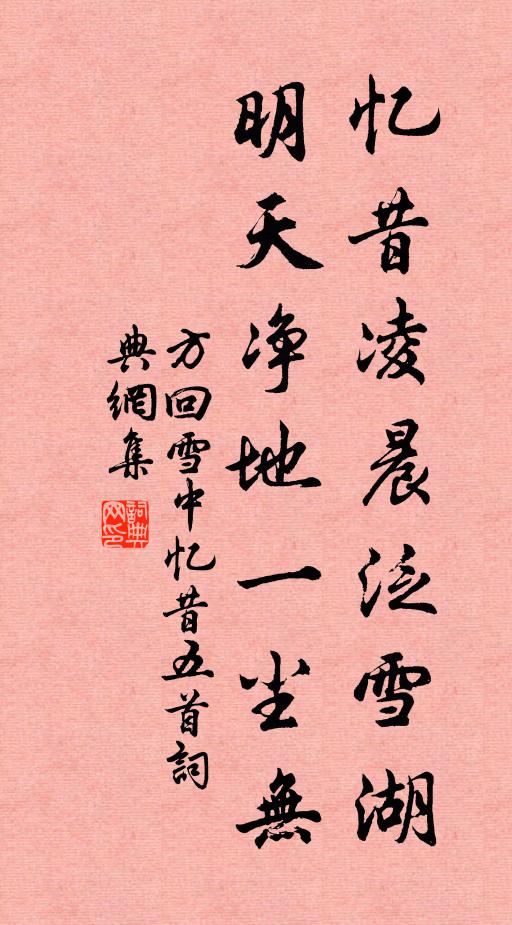 忆昔凌晨泛雪湖
明天净地一尘無
方回雪中忆昔五首詞
典網集
詞典网印